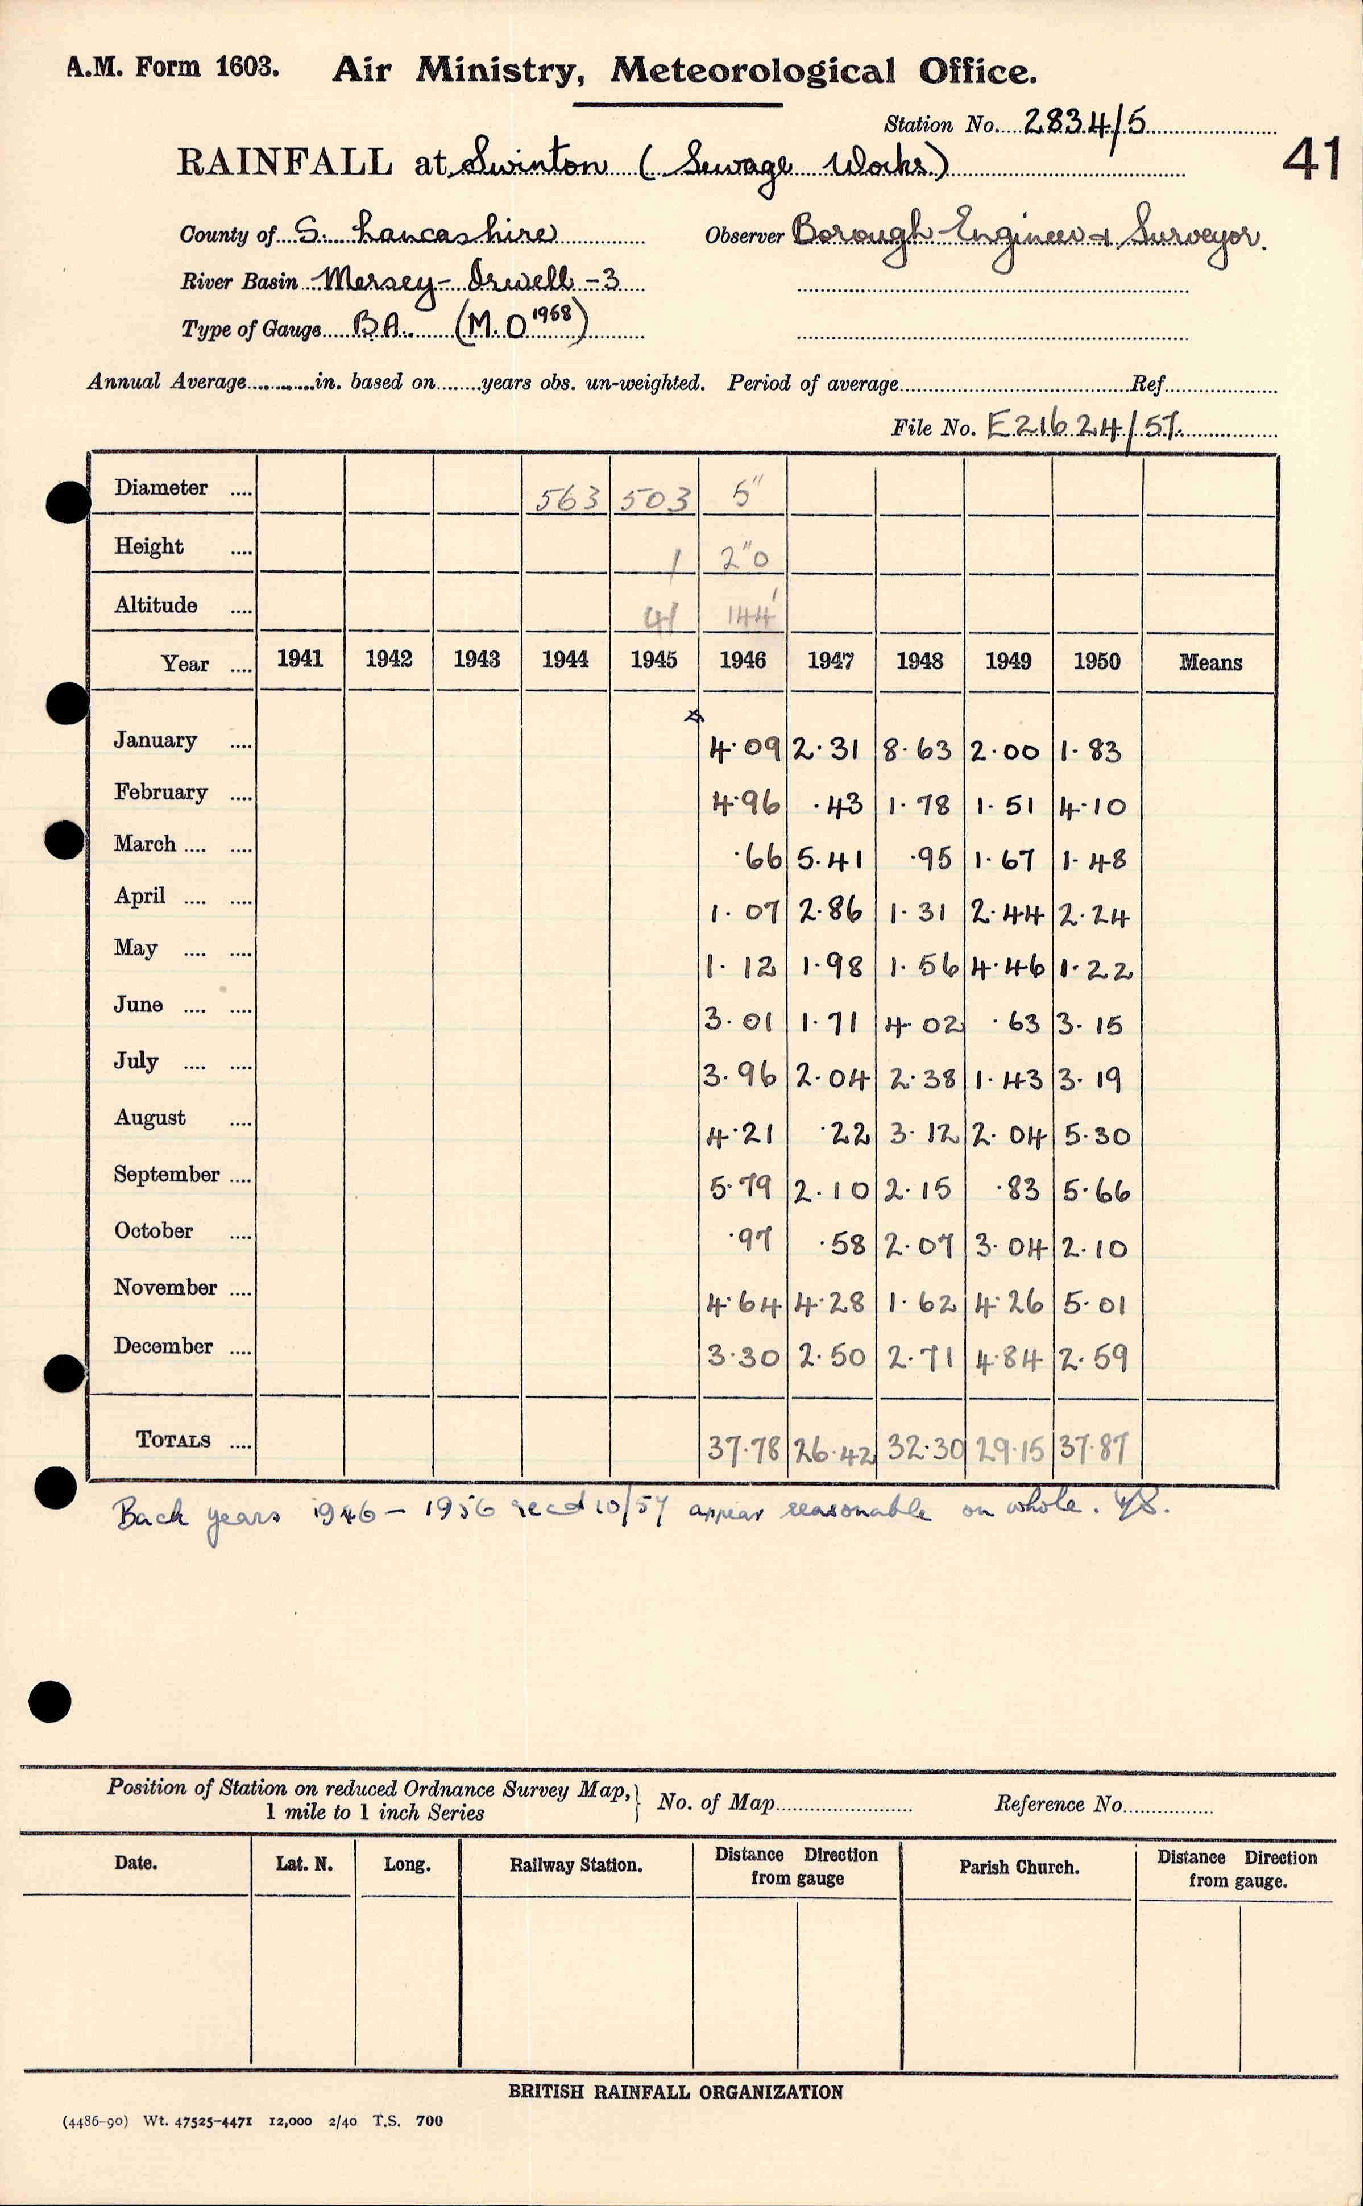 A.M. Form 1603. Air Ministry, Meteorological Office.
Station No. 2834/5
RAINFALL at Swinton (Sewage Works)
41
County of S. Lancashire Observer Borough Engineer & Surveyor.
River Basin Mersey - Irwell - 3
Type of Gauge B.A. (M.O 1968)
Annual Average in. based on years obs. un-weighted. Period of average Ref
File No. E21624/57.
Diameter .... 563 503 5"
Height .... 1 2"0
Altitude .... 41 144'
Year .... 1941 1942 1943 1944 1945 1946 1947 1948 1949 1950 Means
January .... 4.09 2.31 8.63 2.00 1.83
February .... 4.96 .43 1.78 1.51 4.10
March .... .... .66 5.41 .95 1.67 1.48
April .... .... 1.07 2.86 1.31 2.44 2.24
May .... .... 1.12 1.98 1.56 4.46 1.22
June .... .... 3.01 1.71 4.02 .63 3.15
July .... .... 3.96 2.04 2.38 1.43 3.19
August .... 4.21 .22 3.12 2.04 5.30
September .... 5.79 2.10 2.15 .83 5.66
October .... .97 .58 2.07 3.04 2.10
November .... 4.64 4.28 1.62 4.26 5.01
December .... 3.30 2.50 2.71 4.84 2.59
TOTALS .... 37.78 26.42 32.30 29.15 37.87
Back years 1946 - 1956 recd 10/57 appear reasonable on whole.
Position of Station on reduced Ordnance Survey Map, } No. of Map Reference No.
1 mile to 1 inch Series
Date. Lat. N. Long. Railway Station. Distance Direction from gauge Parish Church. Distance Direction from gauge.
BRITISH RAINFALL ORGANIZATION
(4486-90) Wt. 47525-4471 12,000 2/40 T.S. 700